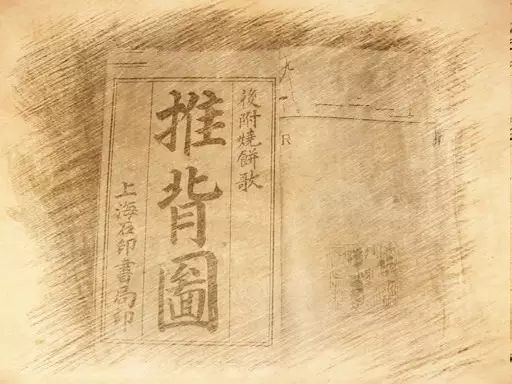 後附燒餅歌
推背圖
上海石印書局印
R